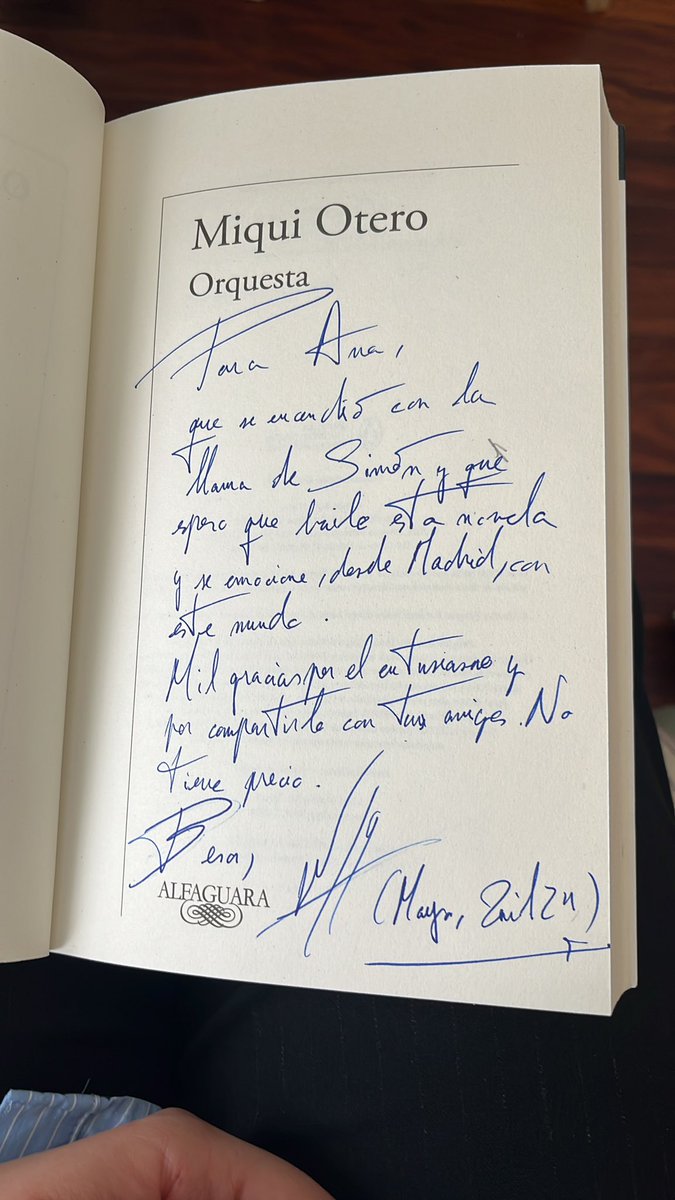 Miqui Otero
Orquesta
Para Ana,
que se encendió con la
llama de Simón y que
espero que baile esta novela
y se emocione, desde Madrid, con
este mundo.
Mil gracias por el entusiasmo y
por compartirlo con tus amigos. No
tiene precio.
Beso,
ALFAGUARA
(Mayo,